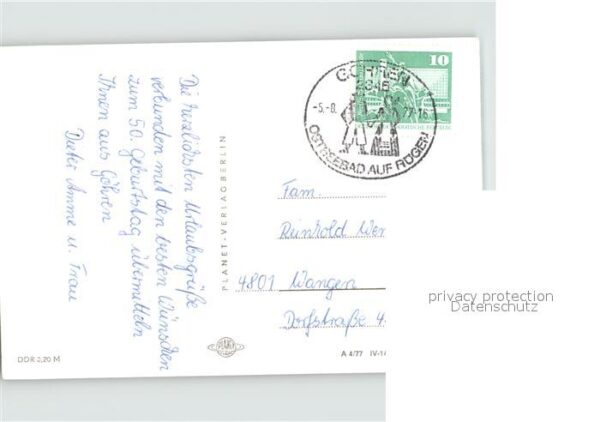 Die herzlichsten Urlaubsgrüße
verbunden mit den besten Wünschen
zum 50. Geburtstag übermitteln
Ihnen aus Göhren
Dieter Amme u. Frau
PLANET-VERLAG BERLIN
DDR 0,20 M
10
GÖHREN
2345
-5.-8.
77-16
OSTSEEBAD AUF RÜGEN
Fam.
Reinhold Wer
4801 Wangen
Dorfstraße 4
A 4/77 IV-14
privacy protection
Datenschutz